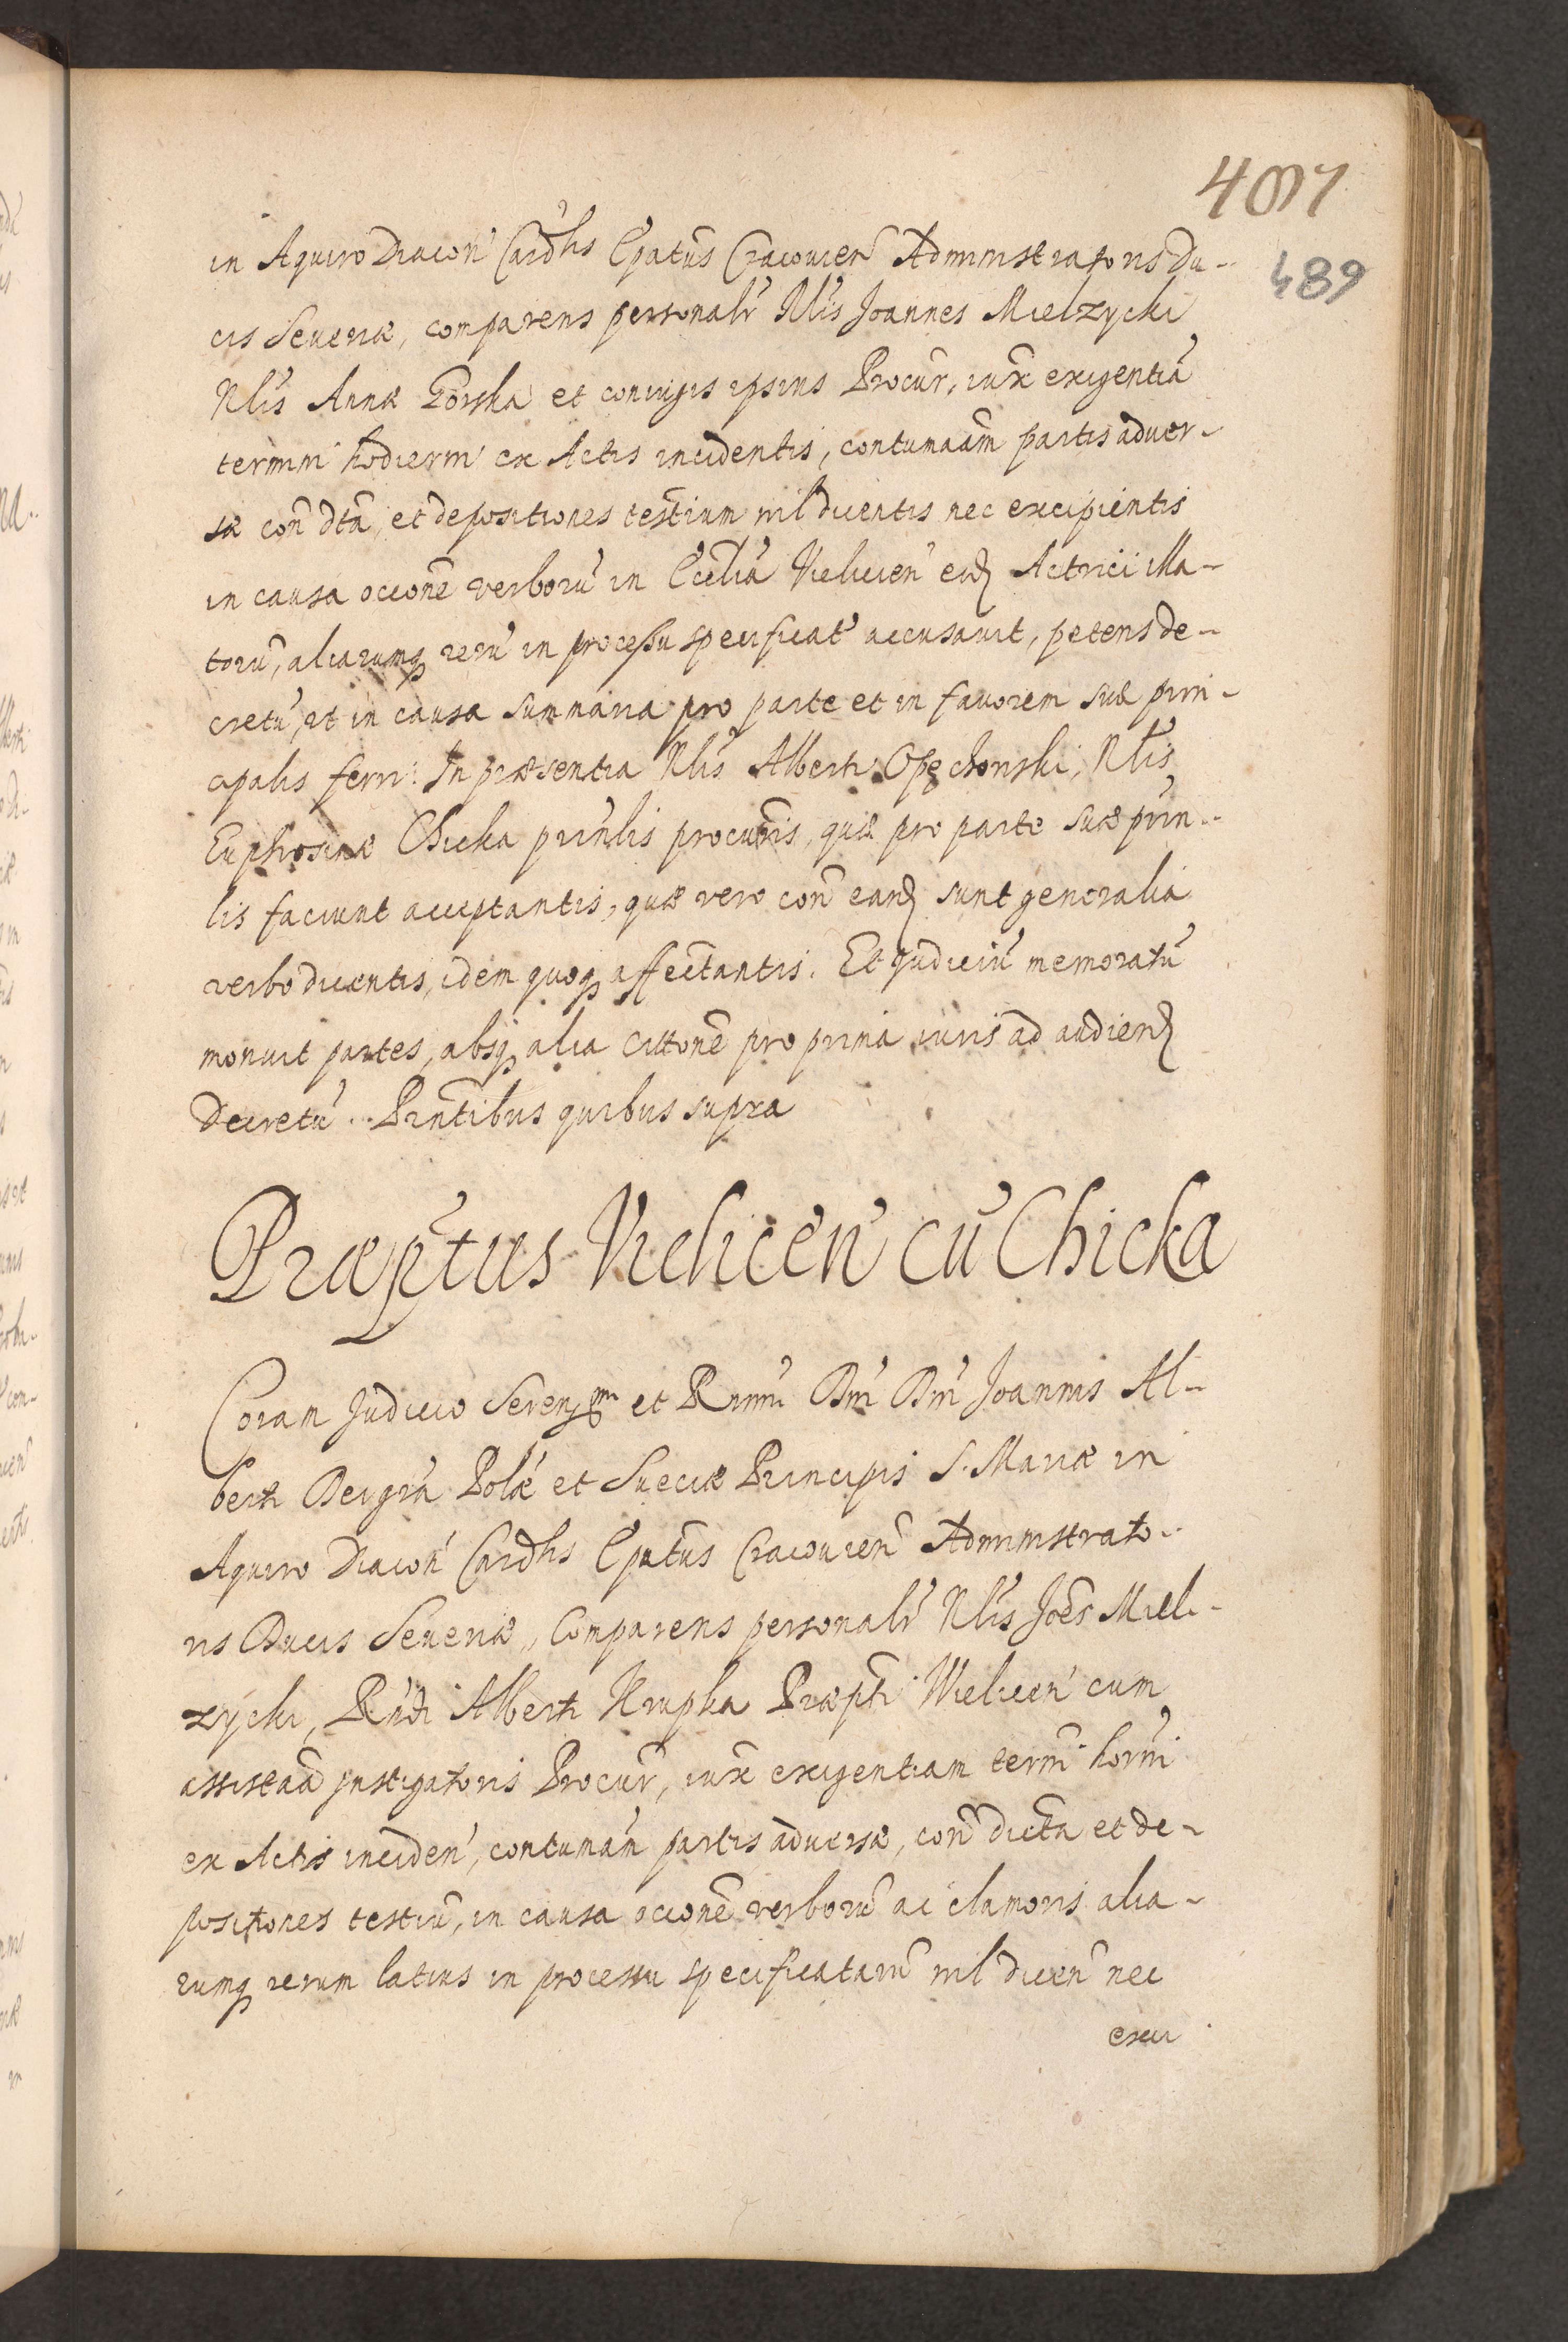 4087
489
in Aquiro Diacon̄ Cardlis Epatus Cracovien̄ Administratoris Du-
cis Severiæ, comparens personalr̄ Nłis Joannes Mielzycki
Nłis Annæ Gorska et coniugis ipsius Procur̄, iux̄ exigentiā
termini hodierni ex Actis incidentis, contumaām partis adver-
sæ con̄ dc̄ta, et depositiones testium nil dicentis nec excipientis
in causa occōne verborū in Ecc̄lia Vielicien̄ eid Actrici illa-
torū, aliarumq rerū in processu specificat̄ accusavit, petens de-
cretū, ut in causa summaria pro parte et in favorem suæ prin-
cipalis ferri: In præsentia Nłis Alberti Opęchowski, Nłis
Euphrosinæ Chicka prin̄lis procur̄is, quæ pro parte suæ prin-
lis faciunt acceptantis, quæ vero con̄ eand sunt generalia
verbo dicentis, idem quoq affectantis. Et Judiciū memoratū
monuit partes, absq alia citt̄one pro prima iuris ad audiend
Decretū. Prn̄tibus quibus supra
Præp̄tus Vielicen̄ cū Chicka
Coram Judicio Serenissmi et Rmī Dn̄i Dn̄i Joannis Al-
berti Dei gr̄a Pol̄æ et Sueciæ Principis S. Mariæ in
Aquiro Diacon̄ Cardlis Epatus Cracovien̄ Administrato-
ris Ducis Severiæ, Comparens personalr̄ Nłis Joēs Miel-
zycki, Rn̄di Alberti Krupka Præpti Wielicen̄ cum
assistaā Instigatoris Procur̄, iux̄ exigentiam termī horn̄i
ex Actis inciden̄, contumām partis adversæ, con̄ dicta et de-
positiones testiū, in causa occōne verborū ac clamoris alia-
rumq rerum latius in processu specificatarū nil dicen̄ nec
exci